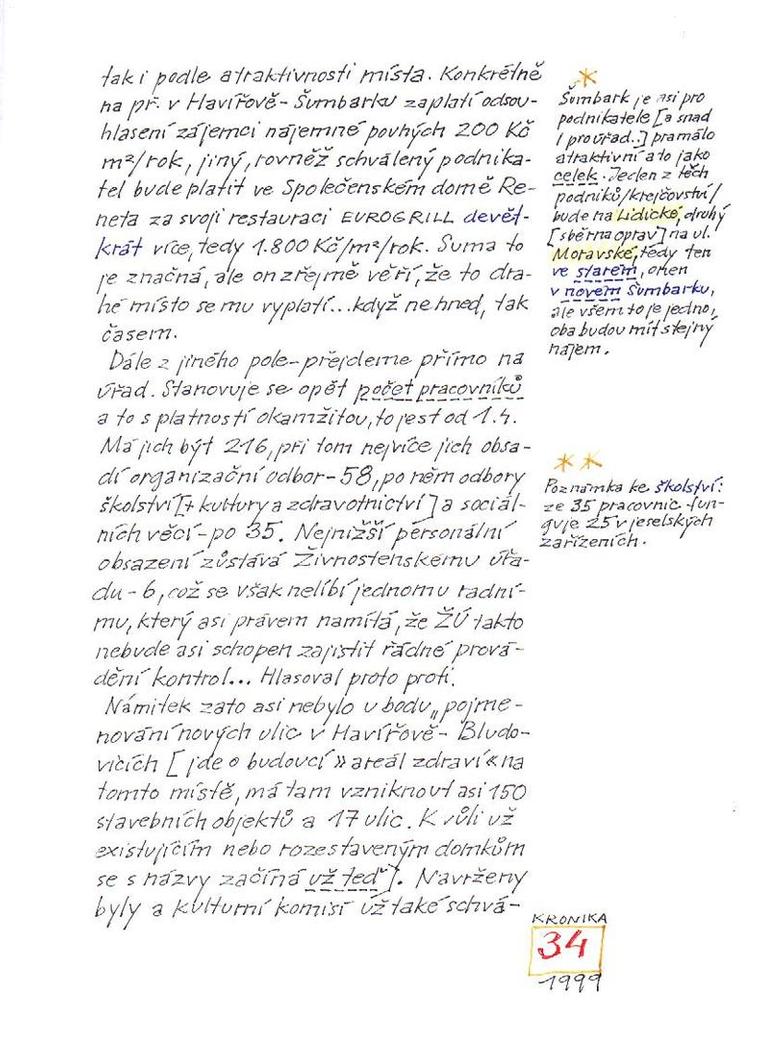 tak i podle atraktivnosti místa. Konkrétně
na př. v Havířově-Šumbarku zaplatí odsou-
hlasení zájemci nájemné pouhých 200 Kč
m²/rok, jiný, rovněž schválený podnika-
tel bude platit ve Společenském domě Re-
neta za svoji restauraci EUROGRILL devět-
krát více, tedy 1.800 Kč/m²/rok. Suma to
je značná, ale on zřejmě věří, že to dra-
hé místo se mu vyplatí...když ne hned, tak
časem.
Dále z jiného pole-přejdeme přímo na
úřad. Stanovuje se opět počet pracovníků
a to s platností okamžitou, to jest od 1.4.
Má jich být 216, při tom nejvíce jich obsa-
dí organizační odbor-58, po něm odbory
školství [+ kultury a zdravotnictví] a sociál-
ních věcí-po 35. Nejnižší personální
obsazení zůstává Živnostenskému úřa-
du-6, což se však nelíbí jednomu radní-
mu, který asi právem namítá, že ŽÚ takto
nebude asi schopen zajistit řádné prová-
dění kontrol... Hlasoval proto proti.
Námitek zato asi nebylo u bodu „pojme-
nování nových ulic v Havířově-Bludo-
vicích [jde o budoucí »areál zdraví« na
tomto místě, má tam vzniknout asi 150
stavebních objektů a 17 ulic. K vůli už
existujícím nebo rozestaveným domkům
se s názvy začíná už teď]. Navrženy
byly a kulturní komisí už také schvá-
*
Šumbark je asi pro
podnikatele [a snad
i pro úřad..] pramálo
atraktivní a to jako
celek. Jeden z těch
podniků/krejčovství/
bude na Lidické, druhý
[sběrna oprav] na ul.
Moravské, tedy ten
ve starém, onen
v novém Šumbarku,
ale všem to je jedno,
oba budou mít stejný
nájem.
**
Poznámka ke školství:
ze 35 pracovnic fun-
guje 25 v jeselských
zařízeních.
KRONIKA
34
1999